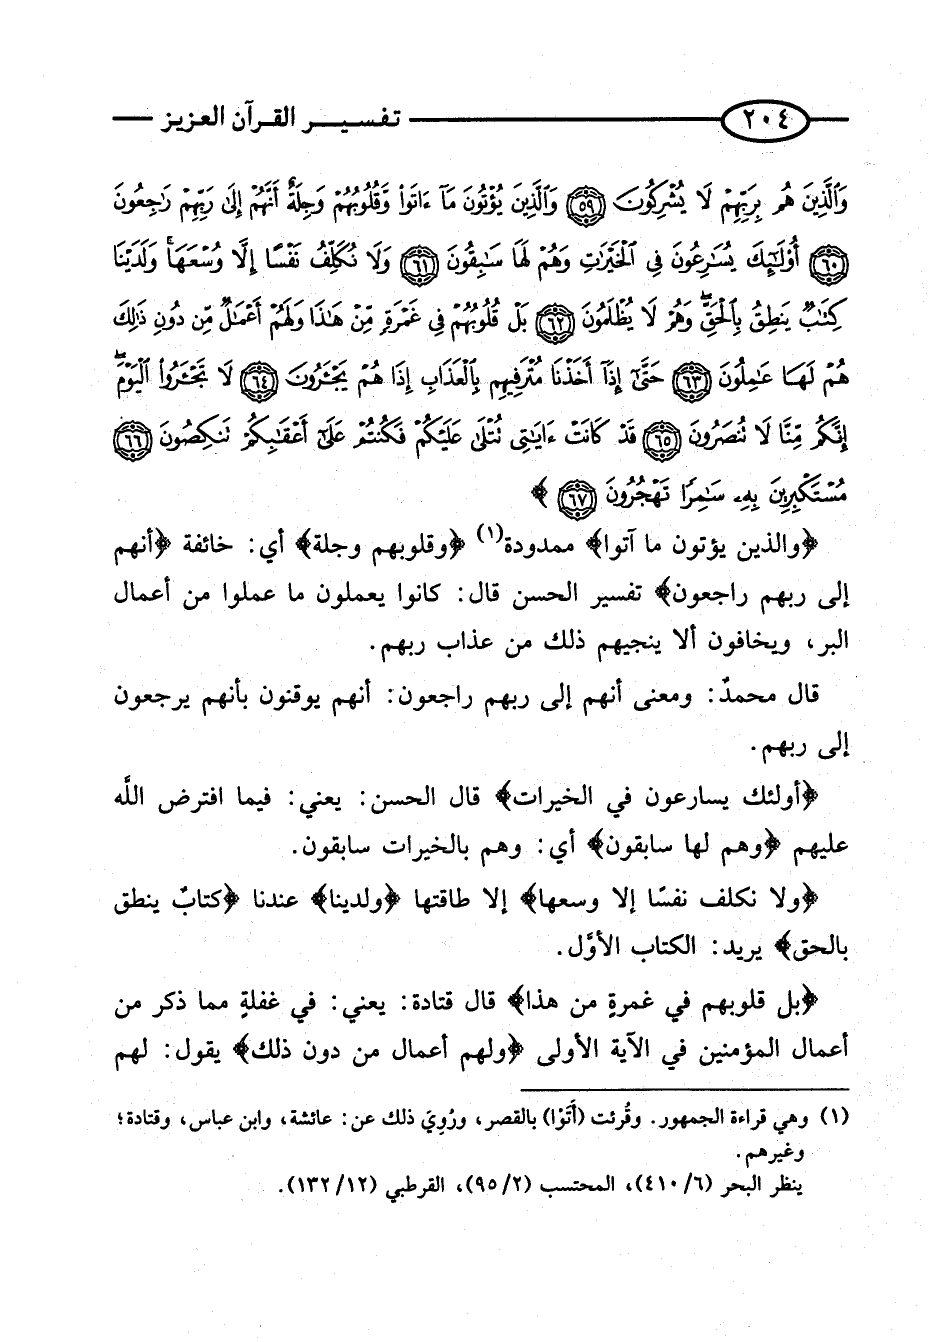 ٢٠٤ تفسير القرآن العزيز
وَالَّذِينَ هُم بِرَبِّهِمْ لَا يُشْرِكُونَ ﴿٥٩﴾ وَالَّذِينَ يُؤْتُونَ مَآ ءَاتَوا۟ وَّقُلُوبُهُمْ وَجِلَةٌ أَنَّهُمْ إِلَىٰ رَبِّهِمْ رَٰجِعُونَ
﴿٦٠﴾ أُو۟لَٰٓئِكَ يُسَٰرِعُونَ فِى ٱلْخَيْرَٰتِ وَهُمْ لَهَا سَٰبِقُونَ ﴿٦١﴾ وَلَا نُكَلِّفُ نَفْسًا إِلَّا وُسْعَهَا ۖ وَلَدَيْنَا
كِتَٰبٌ يَنطِقُ بِٱلْحَقِّ ۖ وَهُمْ لَا يُظْلَمُونَ ﴿٦٢﴾ بَلْ قُلُوبُهُمْ فِى غَمْرَةٍ مِّنْ هَٰذَا وَلَهُمْ أَعْمَٰلٌ مِّن دُونِ ذَٰلِكَ
هُمْ لَهَا عَٰمِلُونَ ﴿٦٣﴾ حَتَّىٰٓ إِذَآ أَخَذْنَا مُتْرَفِيهِم بِٱلْعَذَابِ إِذَا هُمْ يَجْـَٔرُونَ ﴿٦٤﴾ لَا تَجْـَٔرُوا۟ ٱلْيَوْمَ ۖ
إِنَّكُم مِّنَّا لَا تُنصَرُونَ ﴿٦٥﴾ قَدْ كَانَتْ ءَايَٰتِى تُتْلَىٰ عَلَيْكُمْ فَكُنتُمْ عَلَىٰٓ أَعْقَٰبِكُمْ تَنكِصُونَ ﴿٦٦﴾
مُسْتَكْبِرِينَ بِهِۦ سَٰمِرًا تَهْجُرُونَ ﴿٦٧﴾ ﴾
﴿والذين يؤتون ما آتوا﴾ ممدودة(١) ﴿وقلوبهم وجلة﴾ أي: خائفة ﴿أنهم
إلى ربهم راجعون﴾ تفسير الحسن قال: كانوا يعملون ما عملوا من أعمال
البر، ويخافون ألا ينجيهم ذلك من عذاب ربهم.
قال محمدٌ: ومعنى أنهم إلى ربهم راجعون: أنهم يوقنون بأنهم يرجعون
إلى ربهم.
﴿أولئك يسارعون في الخيرات﴾ قال الحسن: يعني: فيما افترض اللَّه
عليهم ﴿وهم لها سابقون﴾ أي: وهم بالخيرات سابقون.
﴿ولا نكلف نفسًا إلا وسعها﴾ إلا طاقتها ﴿ولدينا﴾ عندنا ﴿كتابٌ ينطق
بالحق﴾ يريد: الكتاب الأوَّل.
﴿بل قلوبهم في غمرةٍ من هذا﴾ قال قتادة: يعني: في غفلةٍ مما ذكر من
أعمال المؤمنين في الآية الأولى ﴿ولهم أعمال من دون ذلك﴾ يقول: لهم
(١) وهي قراءة الجمهور. وقُرئت (أَتَوْا) بالقصر، ورُوِيَ ذلك عن: عائشة، وابن عباس، وقتادة؛
وغيرهم.
ينظر البحر (٤١٠/٦)، المحتسب (٩٥/٢)، القرطبي (١٣٢/١٢).